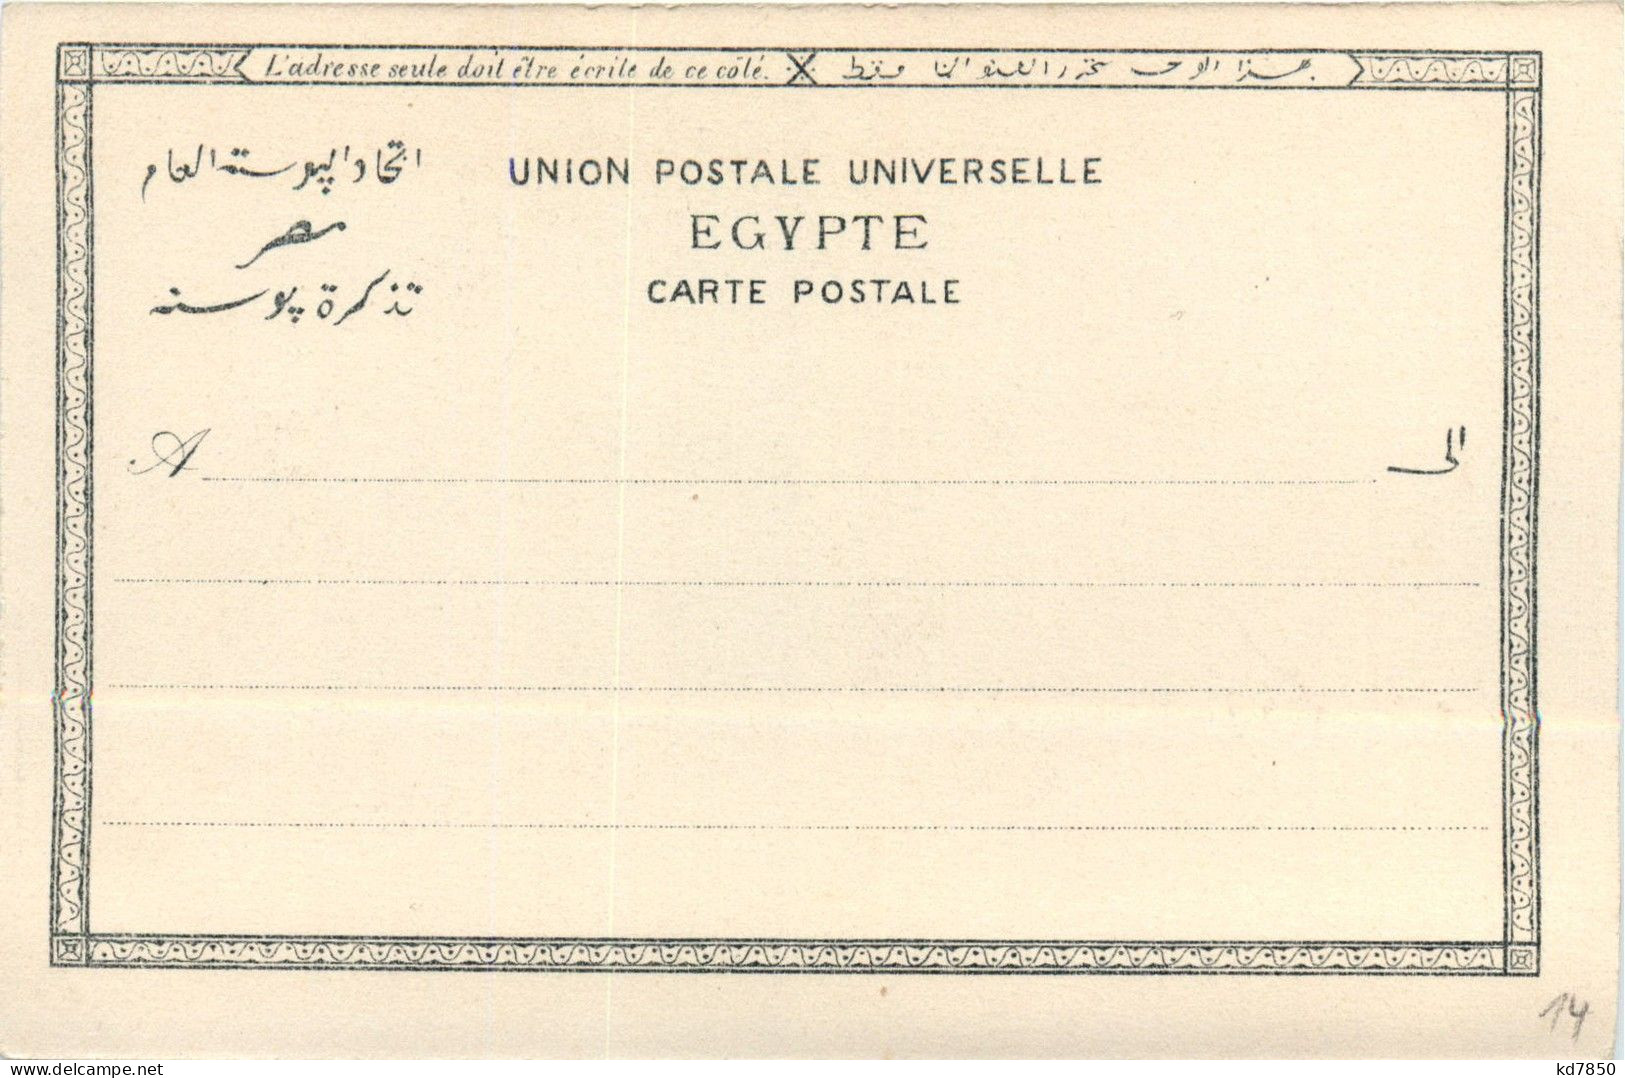 L'adresse seule doit être écrite de ce côté. هذا الوجه يحرر العنوان فقط
اتحاد الپوسته العام
مصر
تذكرة پوسته
UNION POSTALE UNIVERSELLE
EGYPTE
CARTE POSTALE
A
الى
14
kd7850